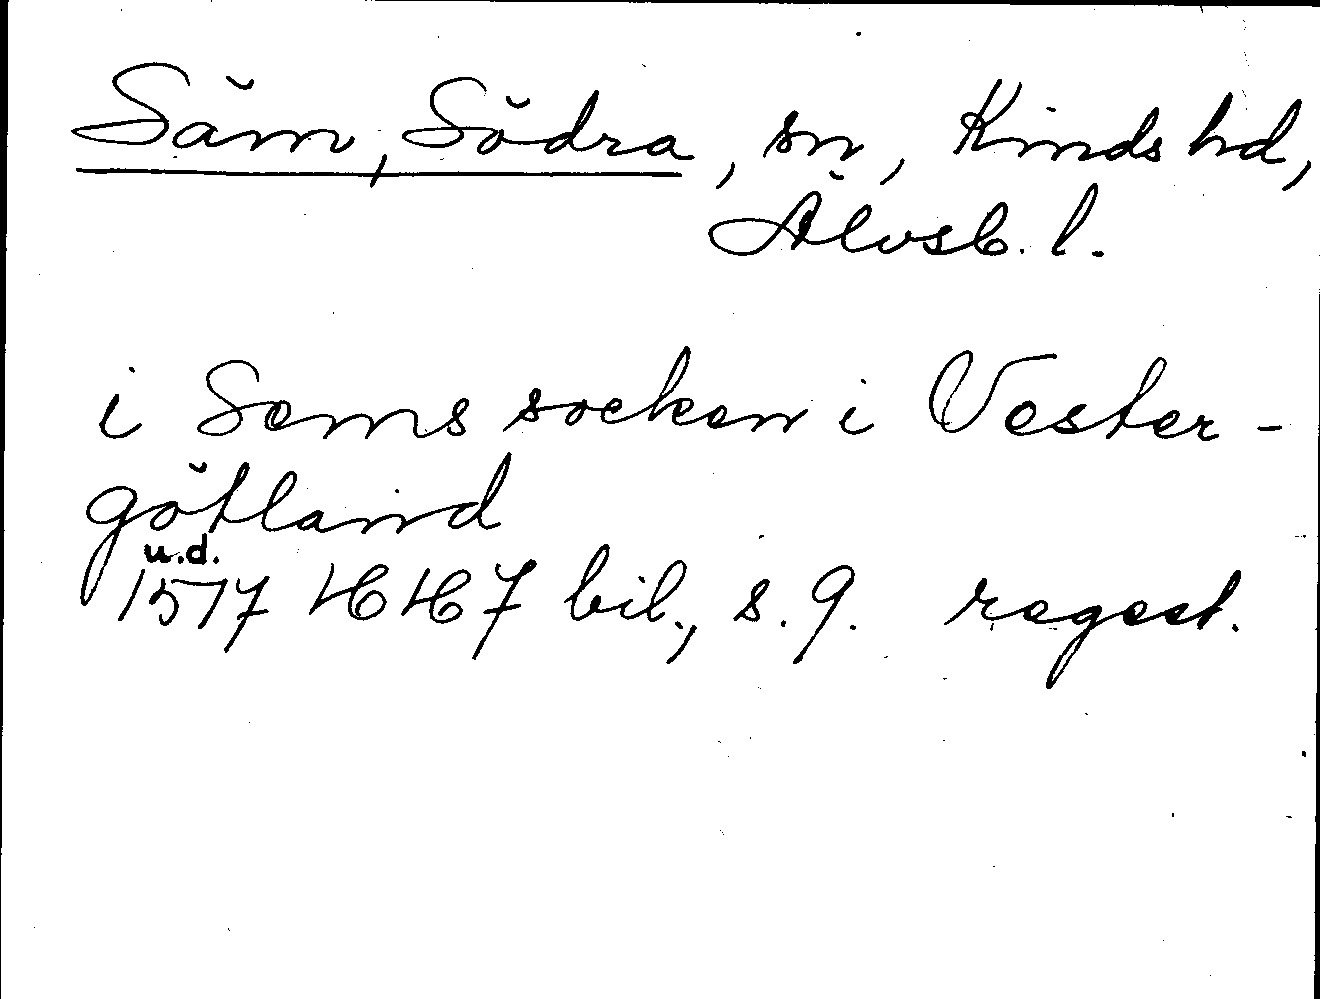 Säm, Södra, sn, Kinds hd,
Älvsb. l.
i Sems socken i Vester-
götland
u.d.
1517 HH 7 bil., s. 9. regest.